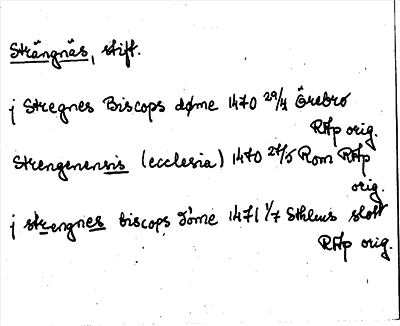 Strängnäs, stift.
j Stregnes Biscops døme 1470 29/4 Örebro
RAp orig.
Strengenensis (ecclesia) 1470 27/5 Rom RAp
orig.
j strengnes biscops döme 1471 1/7 Sthlms slott
RAp orig.